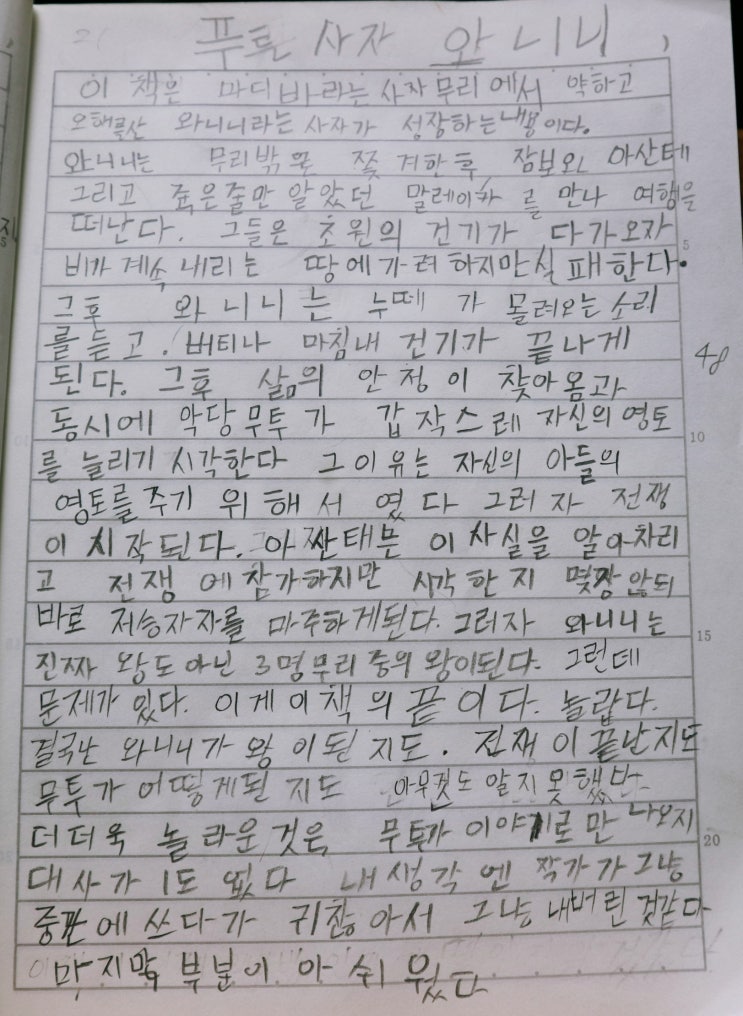 푸른 사자 와니니
이 책은 마디바라는 사자 무리에서 약하고
오해를산 와니니라는 사자가 성장하는내용이다.
와니니는 무리밖으로 쫓겨한후 잠보와 아산테
그리고 죽은줄만 알았던 말레이카를 만나 여행을
떠난다. 그들은 초원의 건기가 다가오자
비가 계속 내리는 땅에가려 하지만실패한다.
그후 와니니는 누떼가 몰려오는 소리
를듣고. 버티나 마침내 건기가 끝나게
된다. 그후 삶의 안정이 찾아옴과
동시에 악당무투가 갑작스레 자신의영토
를 늘리기 시각한다 그이유는 자신의 아들의
영토를주기 위해서 였다 그러자 전쟁
이 시작된다. 아산태는 이사실을 알아차리
고 전쟁에참가하지만 시각한지 몇장 않되
바로 저승자자를 마주하게된다. 그러자 와니니는
진짜 왕도아닌 3명무리 중의 왕이된다. 그런데
문제가 있다. 이게이책의끝이다. 놀랍다.
결국난 와니니가 왕이된지도. 전재이끝난지도
무투가 어떻게된지도 아무것도 알지못했다
더더욱 놀라운것은 무투가 이야기로만 나오지
대사가 1도 없다 내생각엔 작가가그냥
중관에쓰다가 귀찮아서 그냥 내버린것같다
마지막 부분이 아쉬웠다
48
5
10
15
20